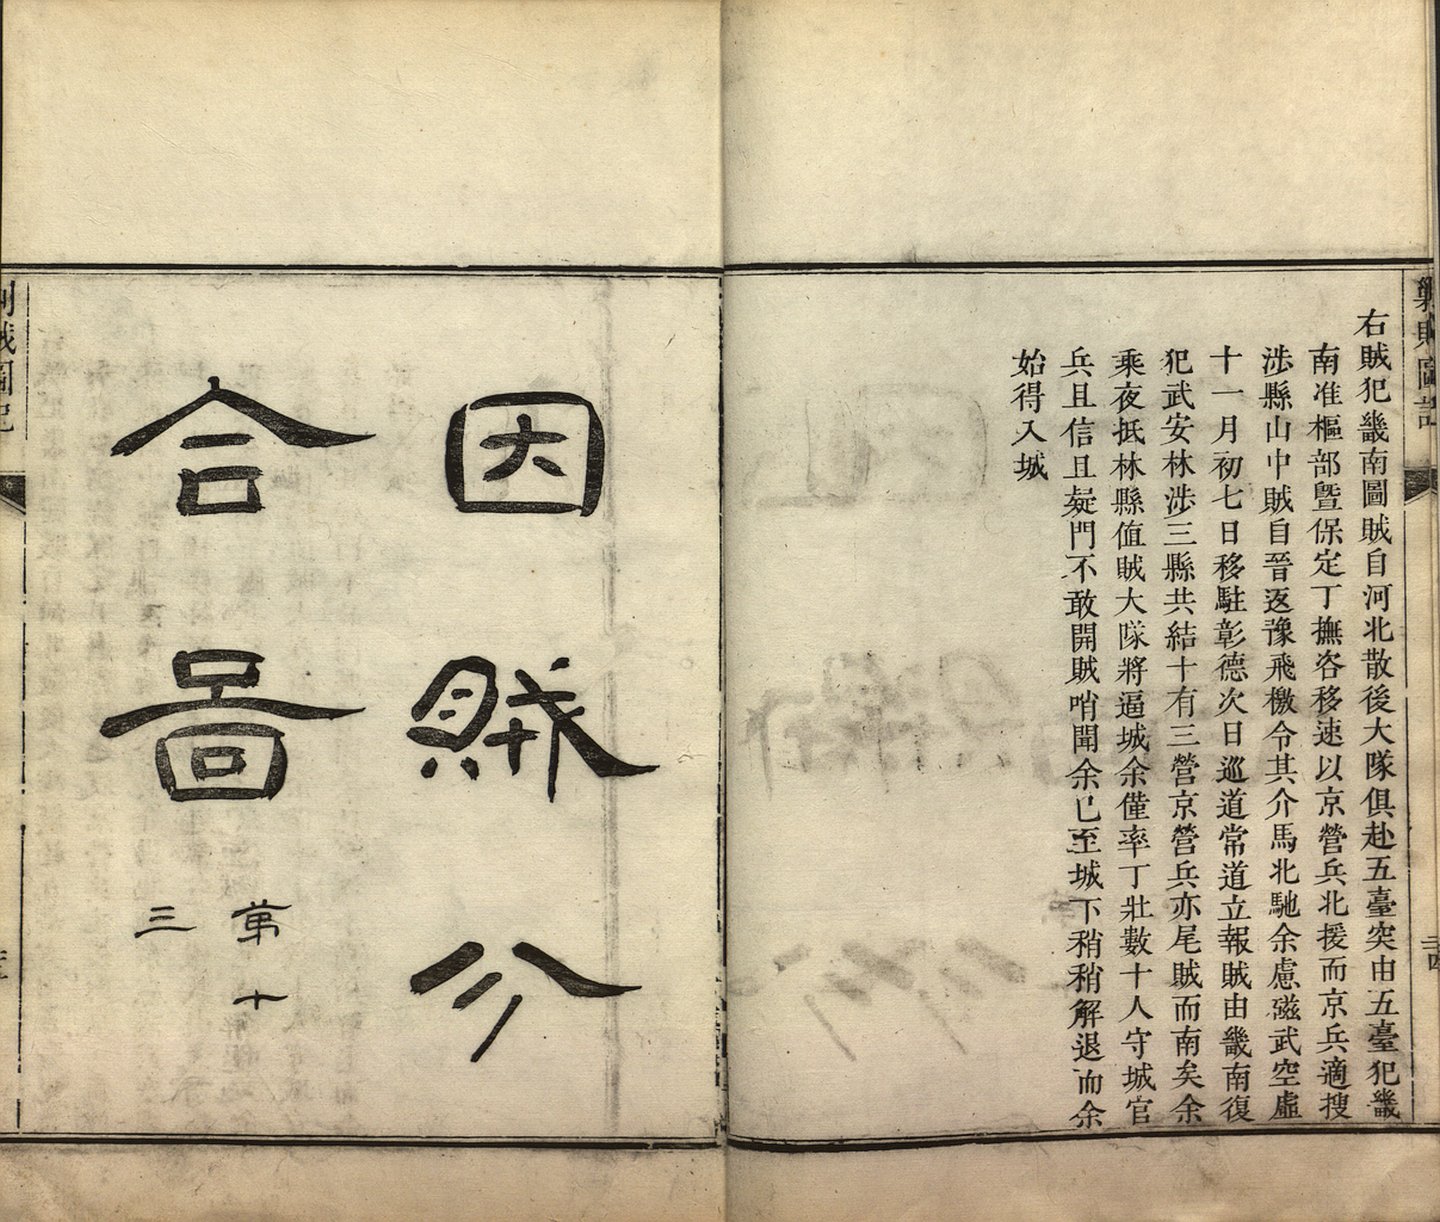 剿賊圖記
右賊犯畿南圖賊自河北散後大隊俱赴五臺突由五臺犯畿
南准樞部曁保定丁撫咨移速以京營兵北援而京兵適搜
涉縣山中賊自晉返豫飛檄令其介馬北馳余慮磁武空虛
十一月初七日移駐彰德次日巡道常道立報賊由畿南復
犯武安林涉三縣共結十有三營京營兵亦尾賊而南矣余
乘夜抵林縣值賊大隊將逼城余僅率丁壯數十人守城官
兵且信且疑門不敢開賊哨聞余已至城下稍稍解退而余
始得入城
因賊分
合圖
第十
三